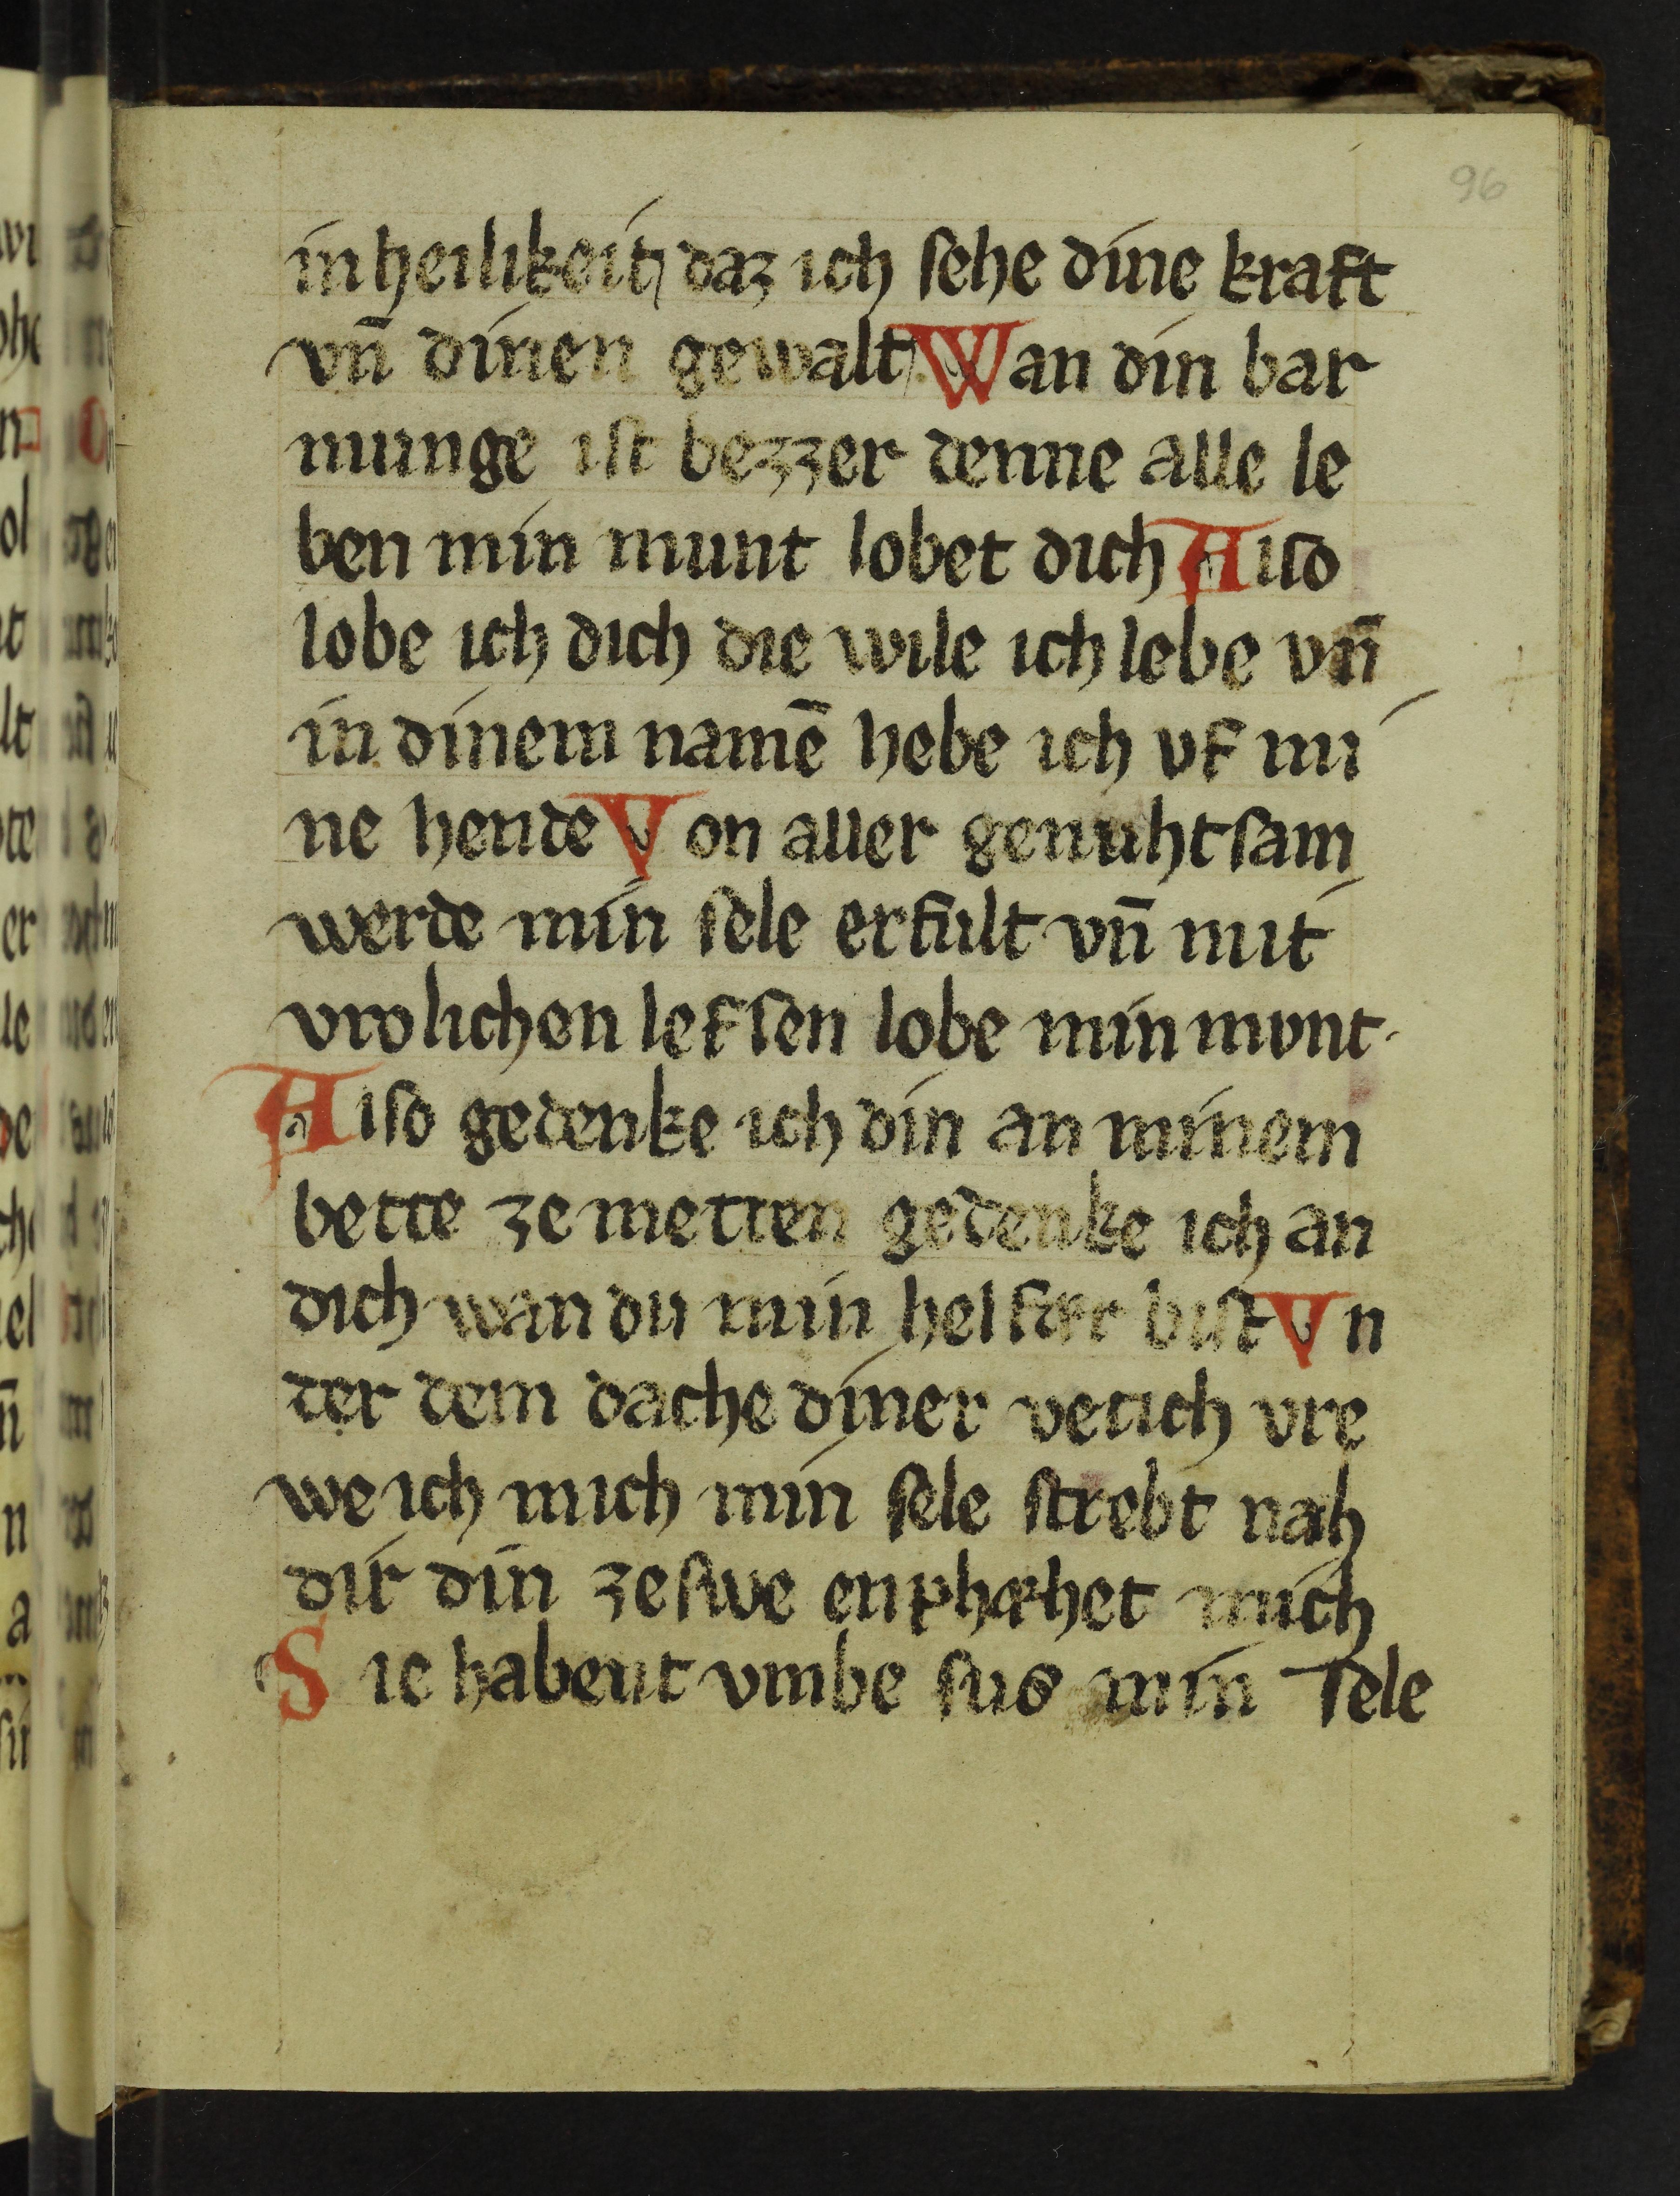 96
in heilikeit daz ich ſehe dine kraft
vn̄ dinen gewalt. Wan din bar
munge iſt bezzer denne alle le
ben min munt lobet dich Alſo
lobe ich dich die wile ich lebe vn̄
in dinem namē hebe ich vf mi
ne hende Von aller genuhtſam
werde min ſele erfult vn̄ mit
vrolichen lefſen lobe min mvnt.
Alſo gedenke ich din an minem
bette ze metten gedenke ich an
dich wan du min helfær biſt Vn
der dem dache diner vetich vre
we ich mich min ſele ſtrebt nah
dir din zeſwe enphæhet mich
Sie habent vmbe ſus min ſele